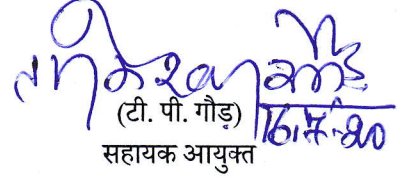 (टी. पी. गौड़)
16.7.20
सहायक आयुक्त